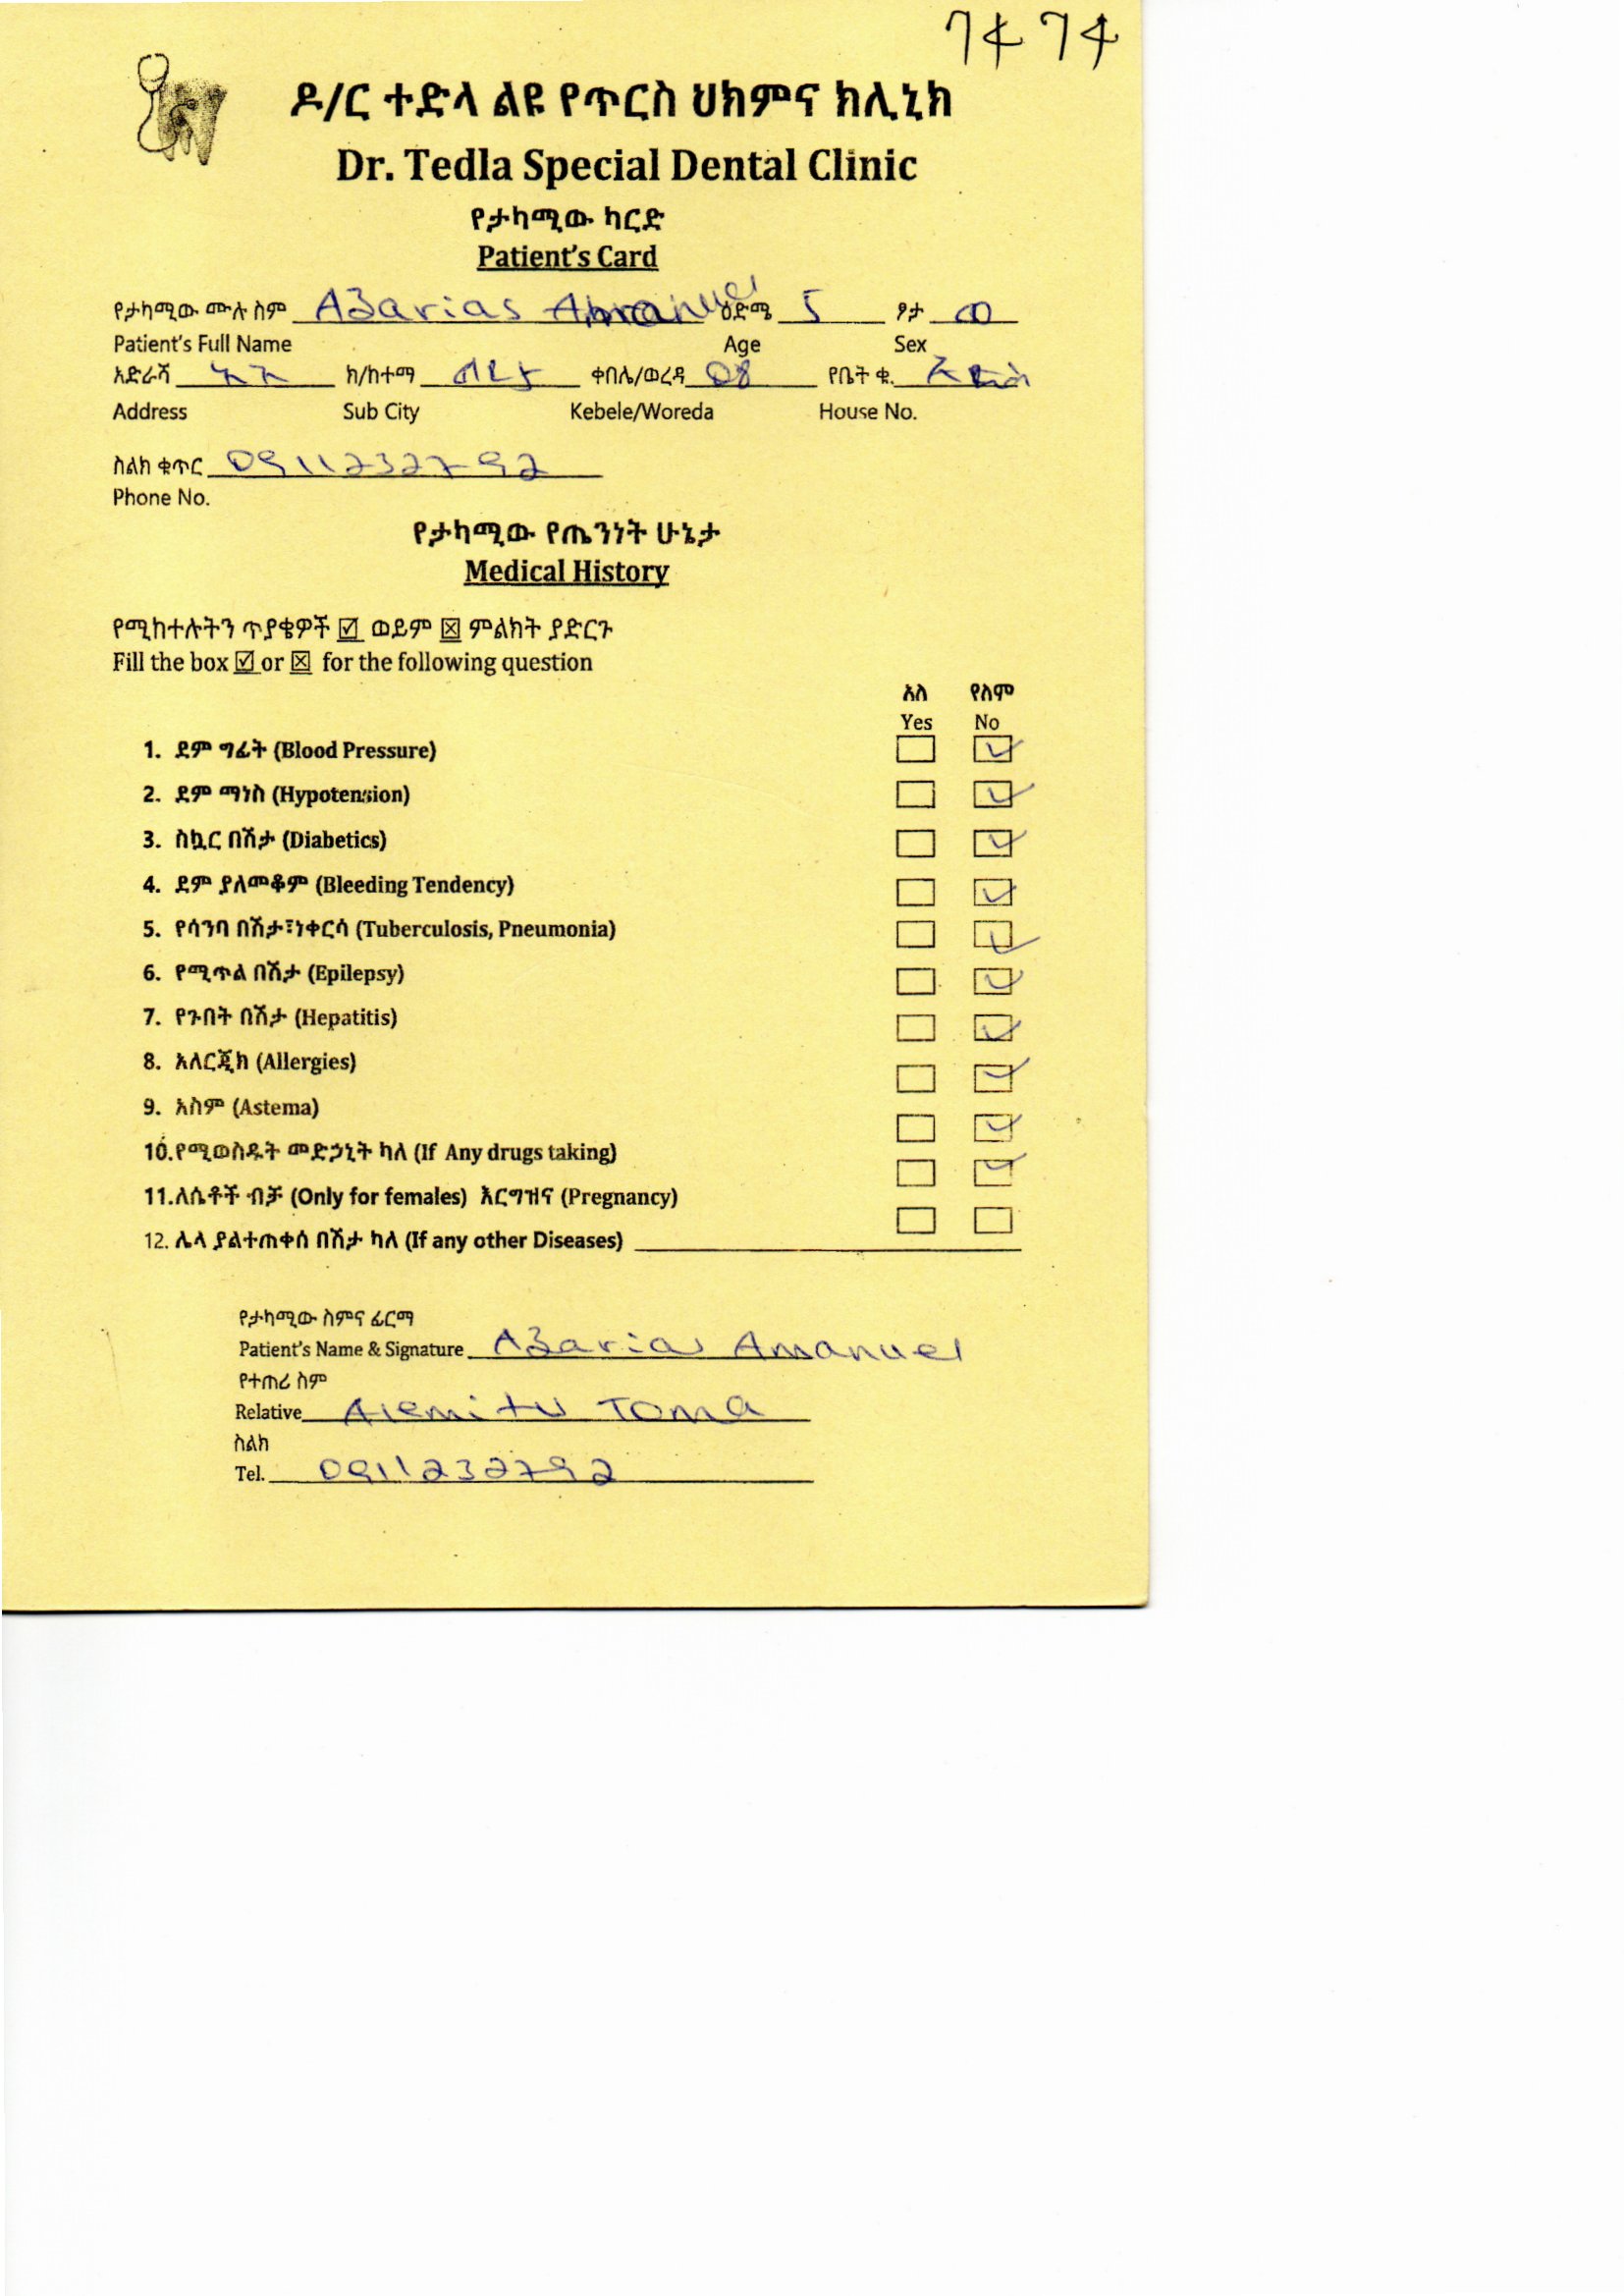 7474
ዶ/ር ተድላ ልዩ የጥርስ ህክምና ክሊኒክ
Dr. Tedla Special Dental Clinic
የታካሚው ካርድ
Patient's Card
የታካሚው ሙሉ ስም Azarias Amanuel ዕድሜ 5 ፆታ ወ
Patient's Full Name Age Sex
አድራሻ አአ ክ/ከተማ ቀበሌ/ወረዳ 08 የቤት ቁ.
Address Sub City Kebele/Woreda House No.
ስልክ ቁጥር 0911232792
Phone No.
የታካሚው የጤንነት ሁኔታ
Medical History
የሚከተሉትን ጥያቄዎች ☑ ወይም ☒ ምልክት ያድርጉ
Fill the box ☑ or ☒ for the following question
አለ የለም
Yes No
1. ደም ግፊት (Blood Pressure) ☐ ☑
2. ደም ማነስ (Hypotension) ☐ ☑
3. ስኳር በሽታ (Diabetics) ☐ ☑
4. ደም ያለመቆም (Bleeding Tendency) ☐ ☑
5. የሳንባ በሽታ፣ነቀርሳ (Tuberculosis, Pneumonia) ☐ ☑
6. የሚጥል በሽታ (Epilepsy) ☐ ☑
7. የጉበት በሽታ (Hepatitis) ☐ ☑
8. አለርጂክ (Allergies) ☐ ☑
9. አስም (Astema) ☐ ☑
10.የሚወስዱት መድኃኒት ካለ (If Any drugs taking) ☐ ☑
11.ለሴቶች ብቻ (Only for females) እርግዝና (Pregnancy) ☐ ☐
12. ሌላ ያልተጠቀሰ በሽታ ካለ (If any other Diseases)
የታካሚው ስምና ፊርማ
Patient's Name & Signature Azarias Amanuel
የተጠሪ ስም
Relative Alemitu Toma
ስልክ
Tel. 0911232792